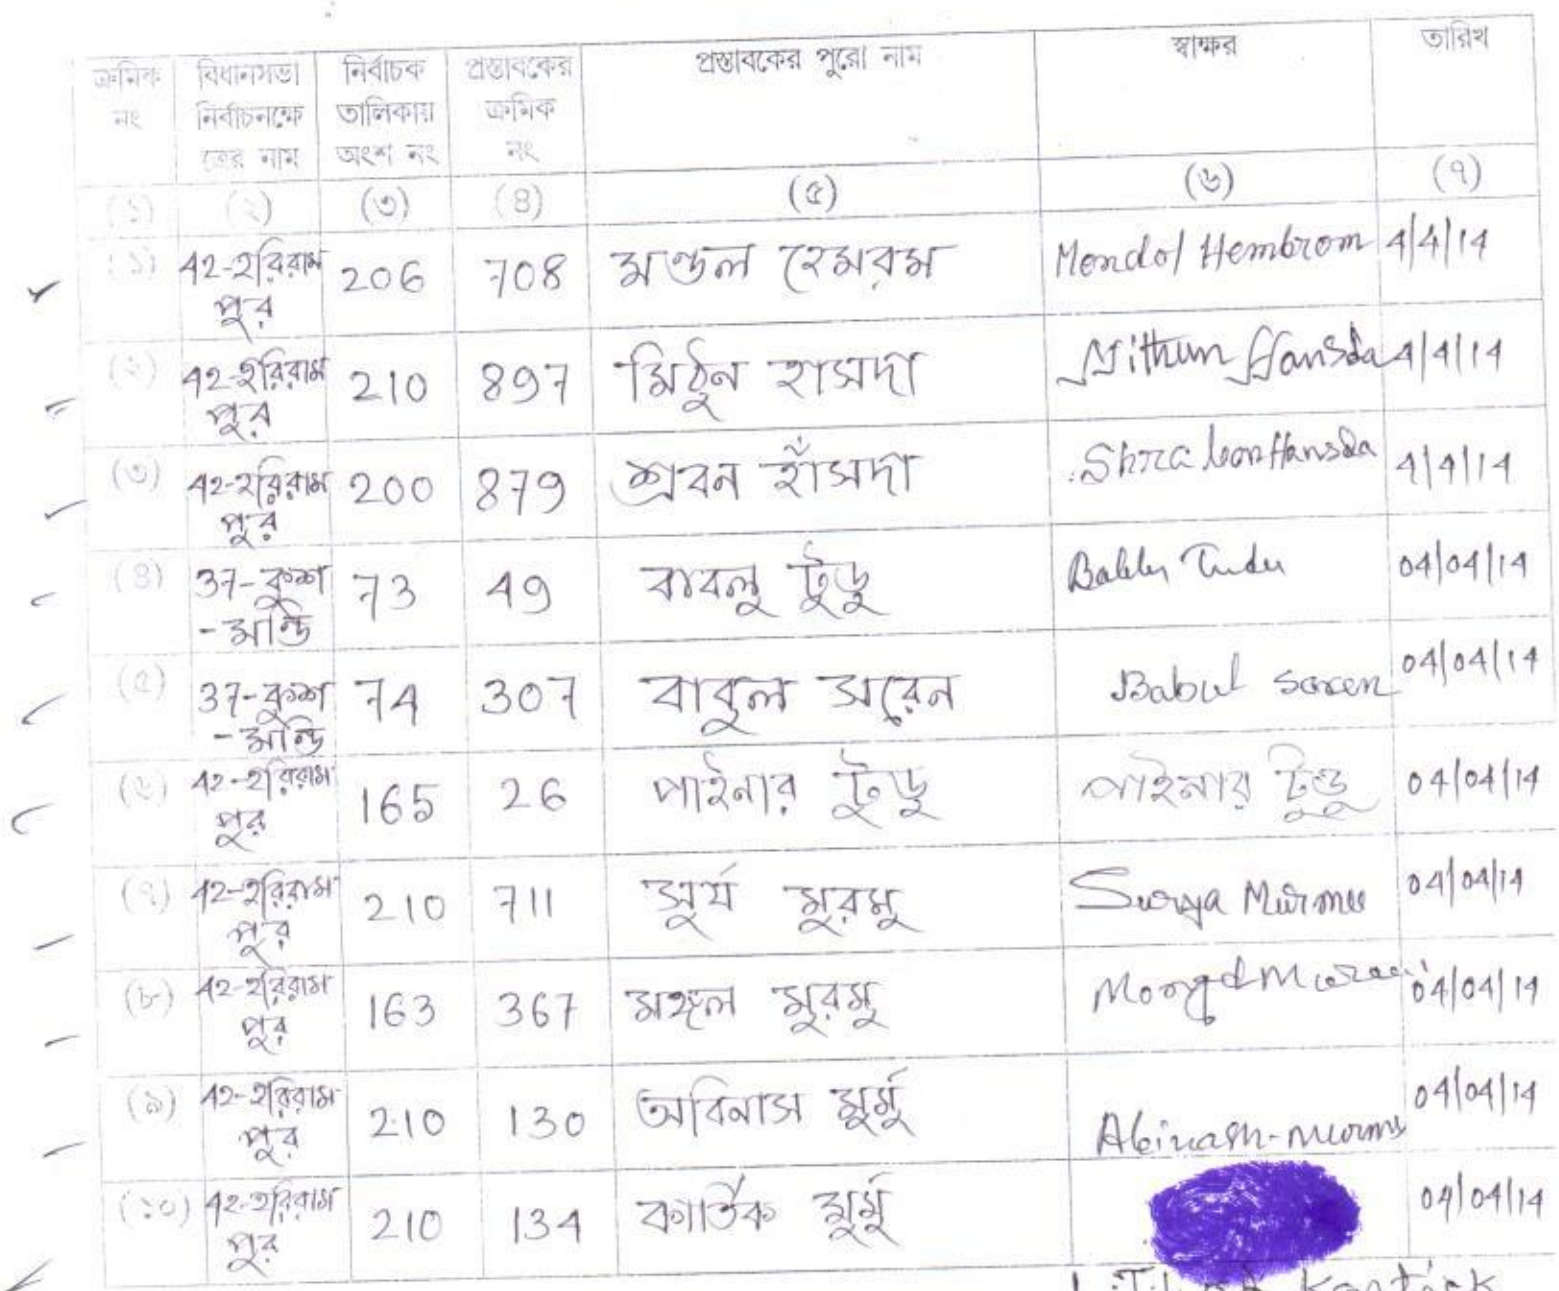 ক্রমিক নং | বিধানসভা নির্বাচনক্ষেত্রের নাম | নির্বাচক তালিকায় অংশ নং | প্রস্তাবকের ক্রমিক নং | প্রস্তাবকের পুরো নাম | স্বাক্ষর | তারিখ
(১) (২) (৩) (৪) (৫) (৬) (৭)
(১) 42-হরিরাম পুর 206 708 মণ্ডল হেমরম Mondol Hembrom 4/4/14
(২) 42-হরিরাম পুর 210 897 মিঠুন হাসদা Mithun Hansda 4/4/14
(৩) 42-হরিরাম পুর 200 879 শ্রবন হাঁসদা Shrabon Hansda 4/4/14
(৪) 37-কুশ -মন্ডি 73 49 বাবলু টুডু Bablu Tudu 04/04/14
(৫) 37-কুশ -মন্ডি 74 307 বাবুল সরেন Babul Soren 04/04/14
(৬) 42-হরিরাম পুর 165 26 পাইনার টুডু পাইনার টুডু 04/04/14
(৭) 42-হরিরাম পুর 210 711 সূর্য মুরমু Surya Murmu 04/04/14
(৮) 42-হরিরাম পুর 163 367 মঙ্গল মুরমু 04/04/14
(৯) 42-হরিরাম পুর 210 130 অবিনাস মুর্মু Abinash-murmu 04/04/14
(১০) 42-হরিরাম পুর 210 134 কার্তিক মুর্মু 04/04/14
L.T.I of Kartick